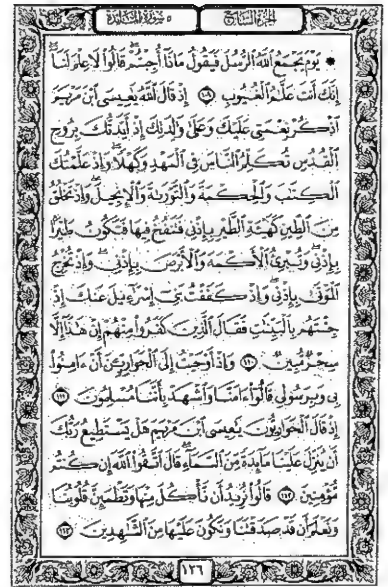 الجزء السابع ٥ سورة المائدة
۞ يَوْمَ يَجْمَعُ اللَّهُ الرُّسُلَ فَيَقُولُ مَاذَا أُجِبْتُمْ قَالُوا لَا عِلْمَ لَنَا
إِنَّكَ أَنتَ عَلَّامُ الْغُيُوبِ ١٠٩ إِذْ قَالَ اللَّهُ يَعِيسَى ابْنَ مَرْيَمَ
اذْكُرْ نِعْمَتِي عَلَيْكَ وَعَلَى وَالِدَتِكَ إِذْ أَيَّدتُّكَ بِرُوحِ
الْقُدُسِ تُكَلِّمُ النَّاسَ فِي الْمَهْدِ وَكَهْلًا وَإِذْ عَلَّمْتُكَ
الْكِتَابَ وَالْحِكْمَةَ وَالتَّوْرَاةَ وَالْإِنجِيلَ وَإِذْ تَخْلُقُ
مِنَ الطِّينِ كَهَيْئَةِ الطَّيْرِ بِإِذْنِي فَتَنفُخُ فِيهَا فَتَكُونُ طَيْرًا
بِإِذْنِي وَتُبْرِئُ الْأَكْمَهَ وَالْأَبْرَصَ بِإِذْنِي وَإِذْ تُخْرِجُ
الْمَوْتَى بِإِذْنِي وَإِذْ كَفَفْتُ بَنِي إِسْرَائِيلَ عَنكَ إِذْ
جِئْتَهُم بِالْبَيِّنَاتِ فَقَالَ الَّذِينَ كَفَرُوا مِنْهُمْ إِنْ هَذَا إِلَّا
سِحْرٌ مُّبِينٌ ١١٠ وَإِذْ أَوْحَيْتُ إِلَى الْحَوَارِيِّينَ أَنْ ءَامِنُوا
بِي وَبِرَسُولِي قَالُوا ءَامَنَّا وَاشْهَدْ بِأَنَّنَا مُسْلِمُونَ ١١١
إِذْ قَالَ الْحَوَارِيُّونَ يَعِيسَى ابْنَ مَرْيَمَ هَلْ يَسْتَطِيعُ رَبُّكَ
أَن يُنَزِّلَ عَلَيْنَا مَائِدَةً مِّنَ السَّمَاءِ قَالَ اتَّقُوا اللَّهَ إِن كُنتُم
مُّؤْمِنِينَ ١١٢ قَالُوا نُرِيدُ أَن نَّأْكُلَ مِنْهَا وَتَطْمَئِنَّ قُلُوبُنَا
وَنَعْلَمَ أَن قَدْ صَدَقْتَنَا وَنَكُونَ عَلَيْهَا مِنَ الشَّاهِدِينَ ١١٣
١٢٦